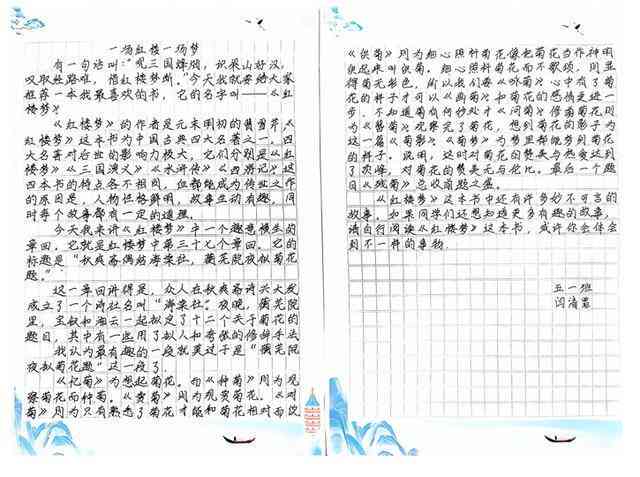 一场红楼一场梦
有一句话叫："观三国烽烟，识梁山好汉，
叹取经路难，惜红楼梦断。"今天我就要给大家
推荐一本我最喜欢的书，它的名字叫——《红
楼梦》。
《红楼梦》的作者是元末明初的曹雪芹，《
红楼梦》这本书为中国古典四大名著之一。四
大名著对后世的影响力极大，它们分别是《红
楼梦》《三国演义》《水浒传》《西游记》这
四本书的特点各不相同，但都能成为传世之作
的原因是，人物性格鲜明，故事生动有趣，同
时每个故事都有一定的道理。
今天我来讲《红楼梦》中一个趣意横生的
章回。它就是红楼梦中第三十七个章回。它的
标题是"秋爽斋偶结海棠社，蘅芜院夜拟菊花
题。"
这一章回讲得是，众人在秋爽斋诗兴大发
成立了一个诗社名叫"海棠社"。夜晚，蘅芜院
里，宝钗和湘云一起拟定了十二个关于菊花的
题目，其中有一些用了拟人和夸张的修辞手法
我认为最有趣的一段就莫过于是"蘅芜院
夜拟菊花题"这一段了。
《忆菊》为想起菊花。而《种菊》则为观
察菊花而种菊。《访菊》则为观赏菊花。《对
菊》则为只有熟悉了菊花才能和菊花相对而说
《供菊》则为细心照料菊花像把菊花当作神明
供起来叫供菊。细心照料菊花而不歌颂，则显
得菊无彩色，所以我们要《咏菊》心中有了菊
花的样子才可以《画菊》和菊花的感情更进一
步，不知道菊向何妙处才《问菊》修剪菊花则
为《簪菊》观察完了菊花，想到菊花的影子为
这一篇《菊影》。《菊梦》为梦里都能梦到菊花
的样子。说明，这时对菊花的赞美与热爱达到
了顶峰，对菊花的赞美无与伦比。最后一个题
目《残菊》总收前题之盛。
《红楼梦》这本书中还有许多妙不可言的
故事，如果同学们还想知道更多有趣的故事，
请自行阅读《红楼梦》这本书，或许你会体会
到不一样的事物.
五一班
闫清